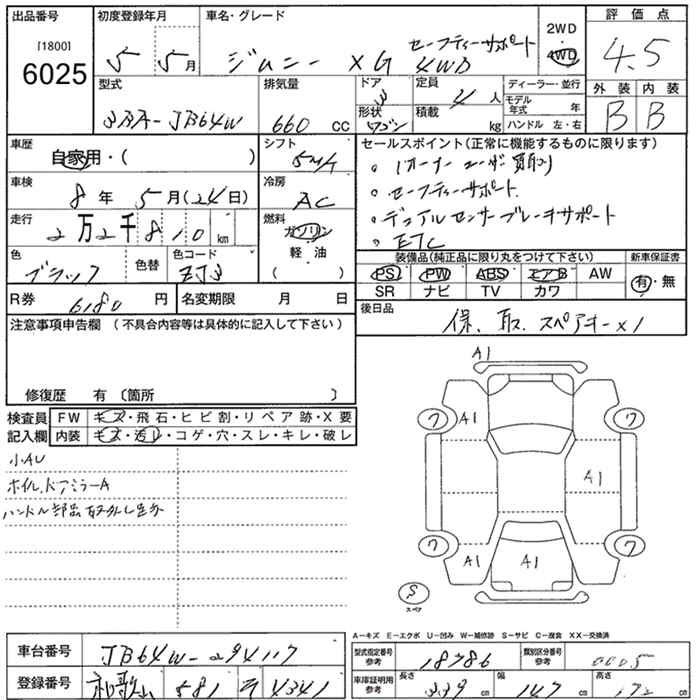 出品番号 [1800] 6025
初度登録年月 5 5月
車名・グレード ジムニー XG セーフティーサポート 4WD
2WD 4WD
評価点 4.5
型式 3BA-JB64W
排気量 660 CC
ドア 3
定員 4人
形状 ワゴン
積載 kg
ディーラー・並行
モデル年式 年
ハンドル 左・右
外装 B 内装 B
車歴 自家用・( )
シフト 5MT
車検 8年 5月(24日)
冷房 AC
走行 2万2千810 km
燃料 ガソリン 軽油
色 ブラック 色替
色コード ZJ3
R券 6180 円
名変期限 月 日
セールスポイント(正常に機能するものに限ります)
・1オーナー ユーザー買取り
・セーフティーサポート
・デュアルセンサーブレーキサポート
・ETC
装備品(純正品に限り丸をつけて下さい)
PS PW ABS エアB AW
SR ナビ TV カワ
新車保証書 有・無
後日品 保、取、スペアキーx1
注意事項申告欄 (不具合内容等は具体的に記入して下さい)
修復歴 有 〔箇所 〕
検査員記入欄
FW キズ・飛石・ヒビ割・リペア跡・X要
内装 キズ・汚レ・コゲ・穴・スレ・キレ・破レ
小AU
ホイル、ドアミラーA
ハンドル部品取外し
A1
ワ A1 ワ
A1
ワ A1 A1 ワ
S スペア
A-キズ E-エクボ U-凹み W-補修跡 S-サビ C-腐食 XX-交換済
車台番号 JB64W-294117
登録番号 和歌山 581 そ 4341
型式指定番号 参考 18786
類別区分番号 参考 0005
車庫証明用 参考 長さ 339 cm 幅 147 cm 高さ 172 cm